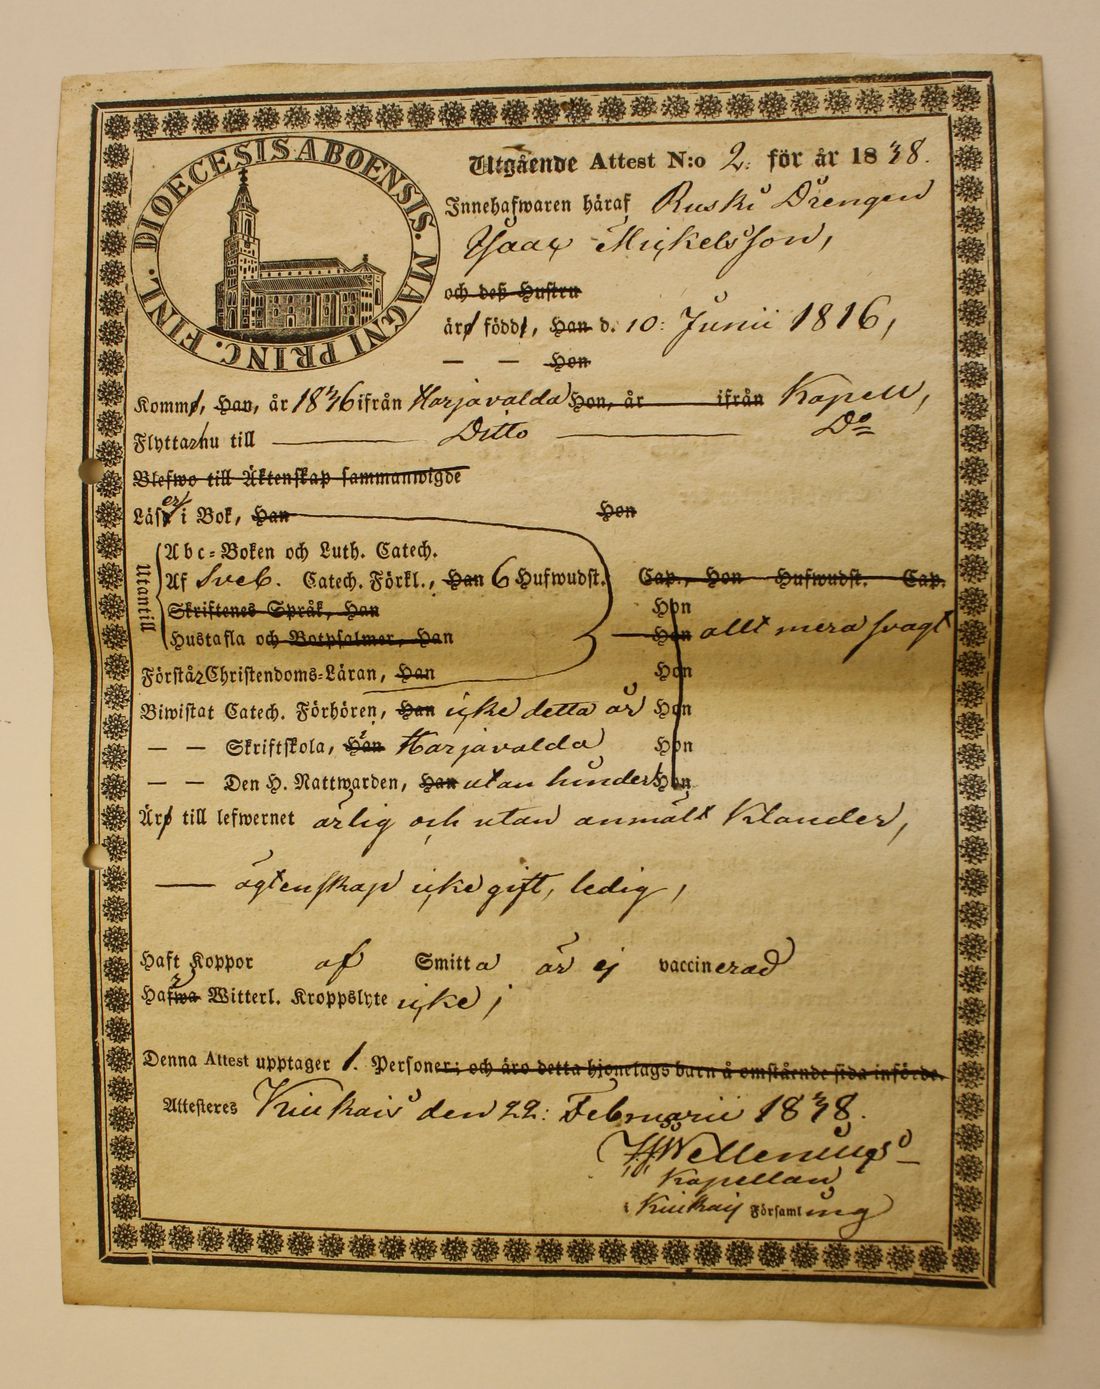 DIOECESIS ABOENSIS. MAGNI PRINC. FINL.
Utgående Attest N:o 2. för år 1838.
Innehafwaren håraf Ruski Drengen
Isaac Mickelsson,
och deß Hustru
äro födde, Han d. 10: Junii 1816,
— — Hon
Komme, Han, år 1836 ifrån Harjavalda Hon, år ifrån Kapell,
Flyttar nu till — Ditto — Do
Blefwo till Äktenskap sammanwigde
Läser i Bok, Han Hon
Utantill
Abc-Boken och Luth. Catech.
Af Sveb. Catech. Förkl., Han 6 Hufwudst. Cap., Hon Hufwudst. Cap.
Skriftenes Språk, Han Hon
Hustafla och Botpsalmer, Han Hon allt mera svagt
Förstår Christendoms-Läran, Han Hon
Biwistat Catech. Förhören, Han icke detta år Hon
— — Skriftskola, Han Harjavalda Hon
— — Den H. Nattwarden, Han utan hinder Hon
Äro till lefwernet ärlig och utan anmält Klander,
— ägtenskap icke gift, ledig,
Haft Koppor af Smitta är ej vaccinerad
Hafwa r Witterl. Kroppslyte icke;
Denna Attest upptager 1. Personer; och äro detta hjonelags barn å omstående sida införde.
Attesteres Kiukais den 22: Februarii 1838.
Kapellan
Kiukais Församling